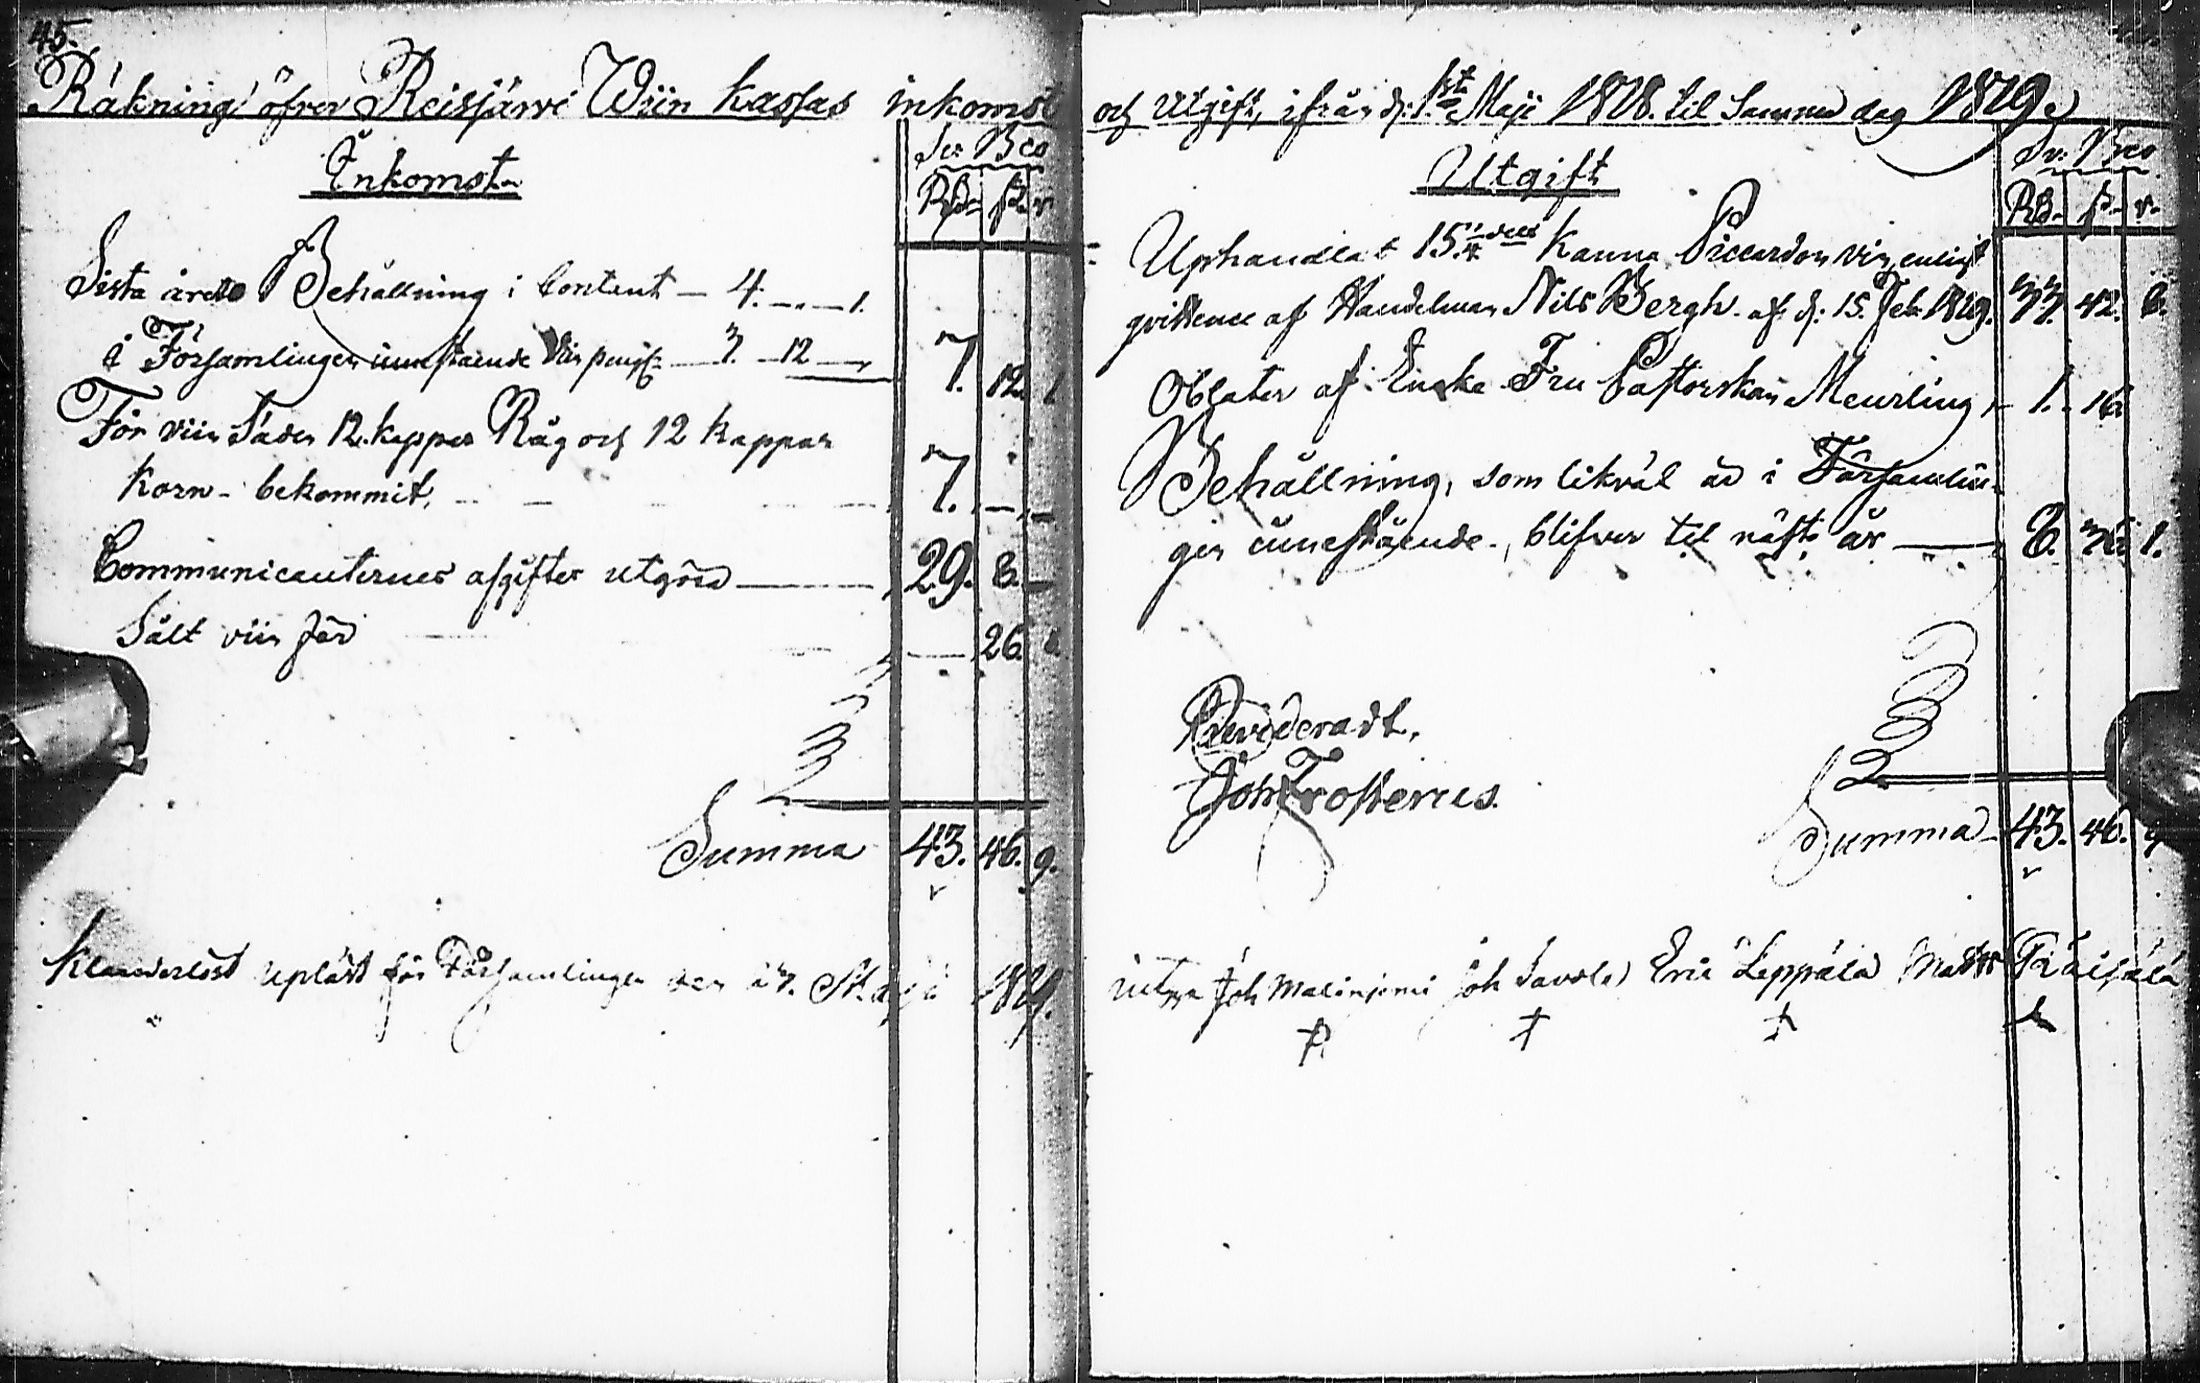 45.
Räkning öfver Reisjärvi Wiin kassas inkomst
Inkomst
Sv: Bco
Rd. ß. r.
Sista årets Behållning i Contant — 4. — 1.
å Församlingen innestående Viin peng: — 3. 12 — 7. 12. 1
För viin Säden 12. kappar Råg och 12 kappar
Korn bekommit, — — — 7. — —
Communicanternes afgifter utgöra — 29. 8. —
Sålt viin för — 26. 8
Summa 43. 46. 9.
Klanderlöst upläst för Församlingen den 1819.
och Utgift, ifrån d: 1sta Maji 1818. til Samma dag 1819.
Utgift
Sv: Bco
Rd. ß. r.
Uphandlat 15 1/4 dels Kanna Piccardon vin, enligt
qvittence af Handelman Nils Bergh. af d: 15. Feb: 1819. 33. 42. 8.
Oblater af Enke Fru Pastorskan Meurling, — 1. 16
Behållning, som likväl är i Församlin-
gen innestående, blifver til nästa år — 8. 36. 1.
Revideradt,
Joh Frosterus.
Summa 43. 46. 9
intyga Joh Malinjemi Joh Savola Eric Leppälä Matts Räisälä